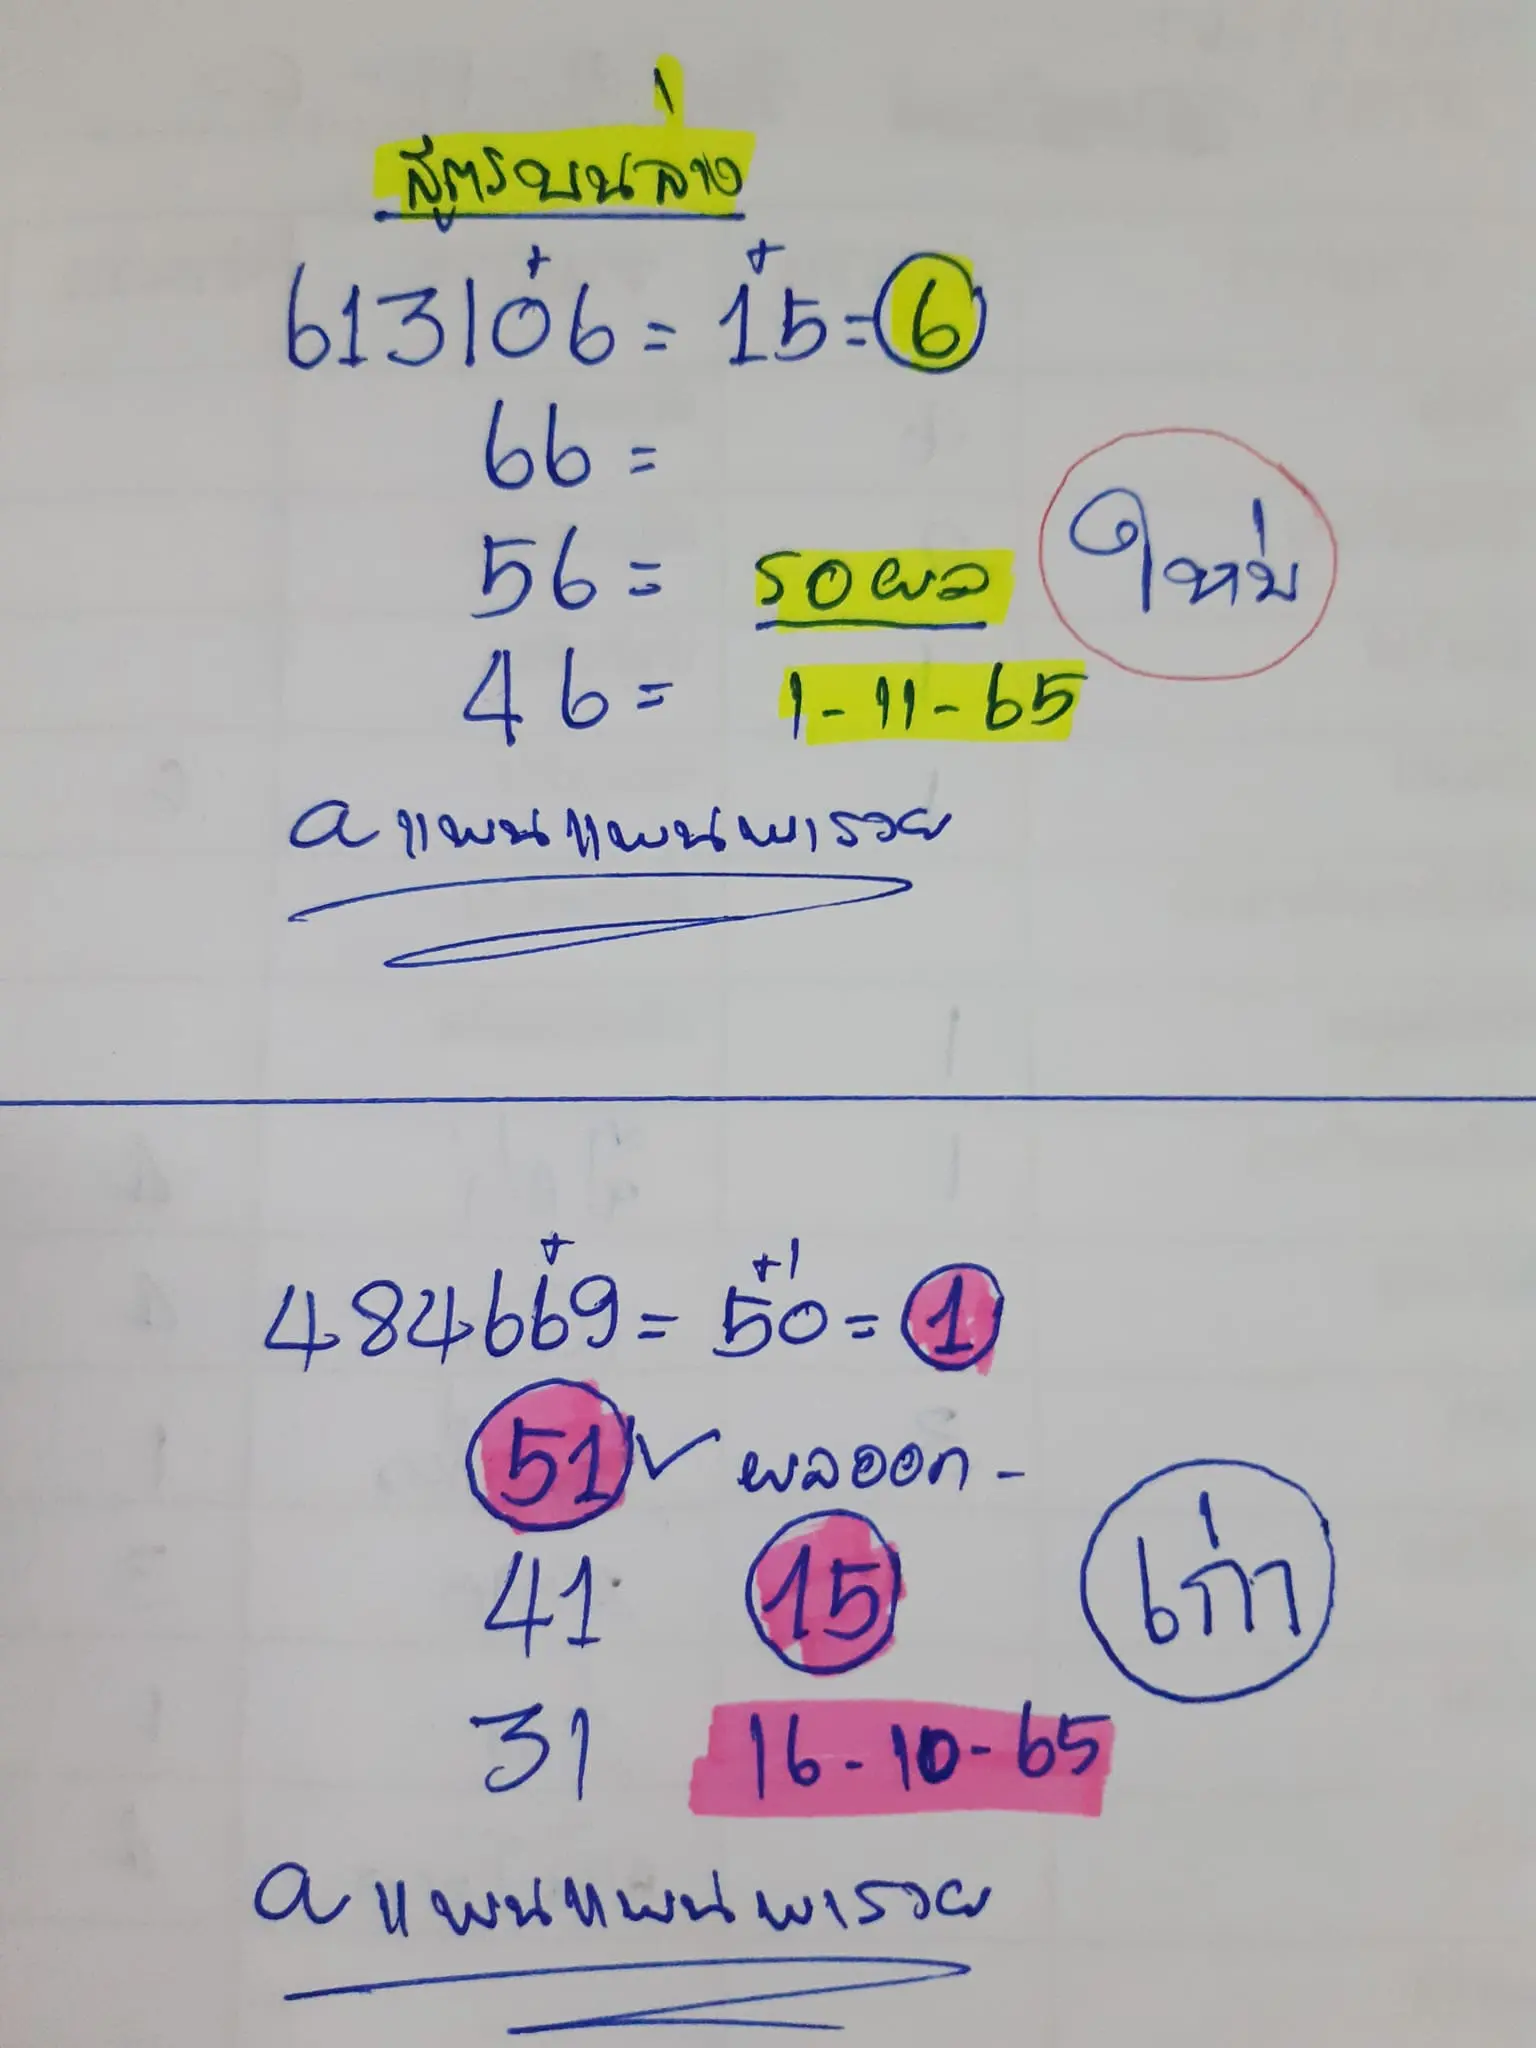 สูตรบนล่าง
+ +
613106 = 15 = 6
66 =
56 = รอผล
ใหม่
46 = 1-11-65
a แพนแพนพารวย
+ + 1
484669 = 50 = 1
51 ✓ ผลออก -
41 15
เก่า
31 16-10-65
a แพนแพนพารวย